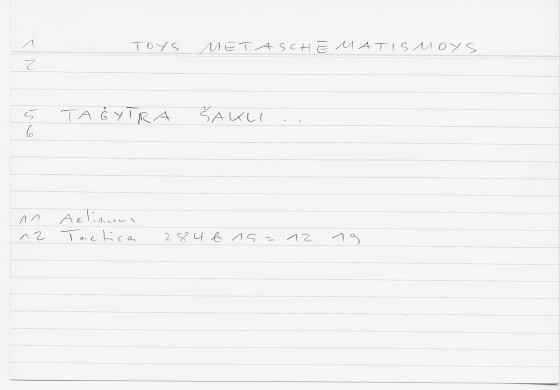 1 TOYS METASCHĒMATISMOYS
2
5 TAĠYĪRA ŠAKLI ..
6
11 Aelianus
12 Tactica 284 b 15 = 12 19